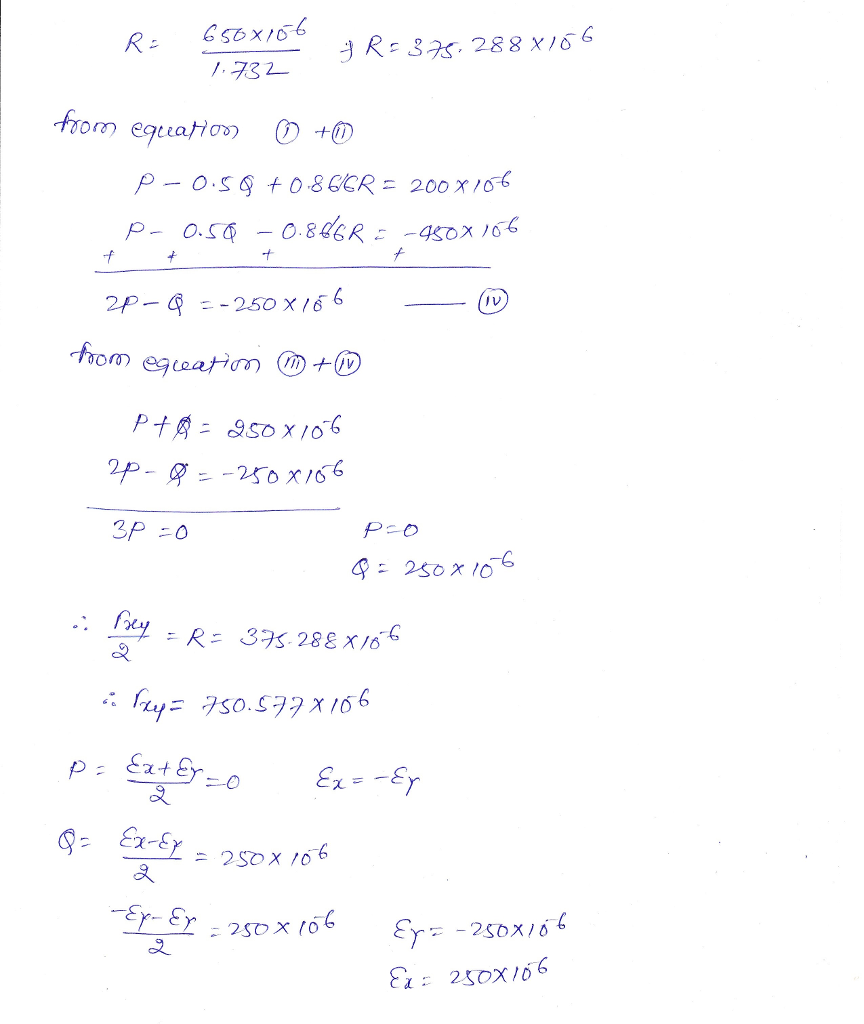 R = 650×10⁻⁶ / 1.732 ⇒ R = 375.288×10⁻⁶
from equation (i) + (ii)
P - 0.5Q + 0.866R = 200×10⁻⁶
P - 0.5Q - 0.866R = -450×10⁻⁶
+ + + +
2P - Q = -250×10⁻⁶ — (iv)
from equation (iii) + (iv)
P + Q = 250×10⁻⁶
2P - Q = -250×10⁻⁶
3P = 0 P = 0
Q = 250×10⁻⁶
∴ Γxy / 2 = R = 375.288×10⁻⁶
∴ Γxy = 750.577×10⁻⁶
P = Ex + Ey / 2 = 0 Ex = -Ey
Q = Ex - Ey / 2 = 250×10⁻⁶
-Ey - Ey / 2 = 250×10⁻⁶ Ey = -250×10⁻⁶
Ex = 250×10⁻⁶